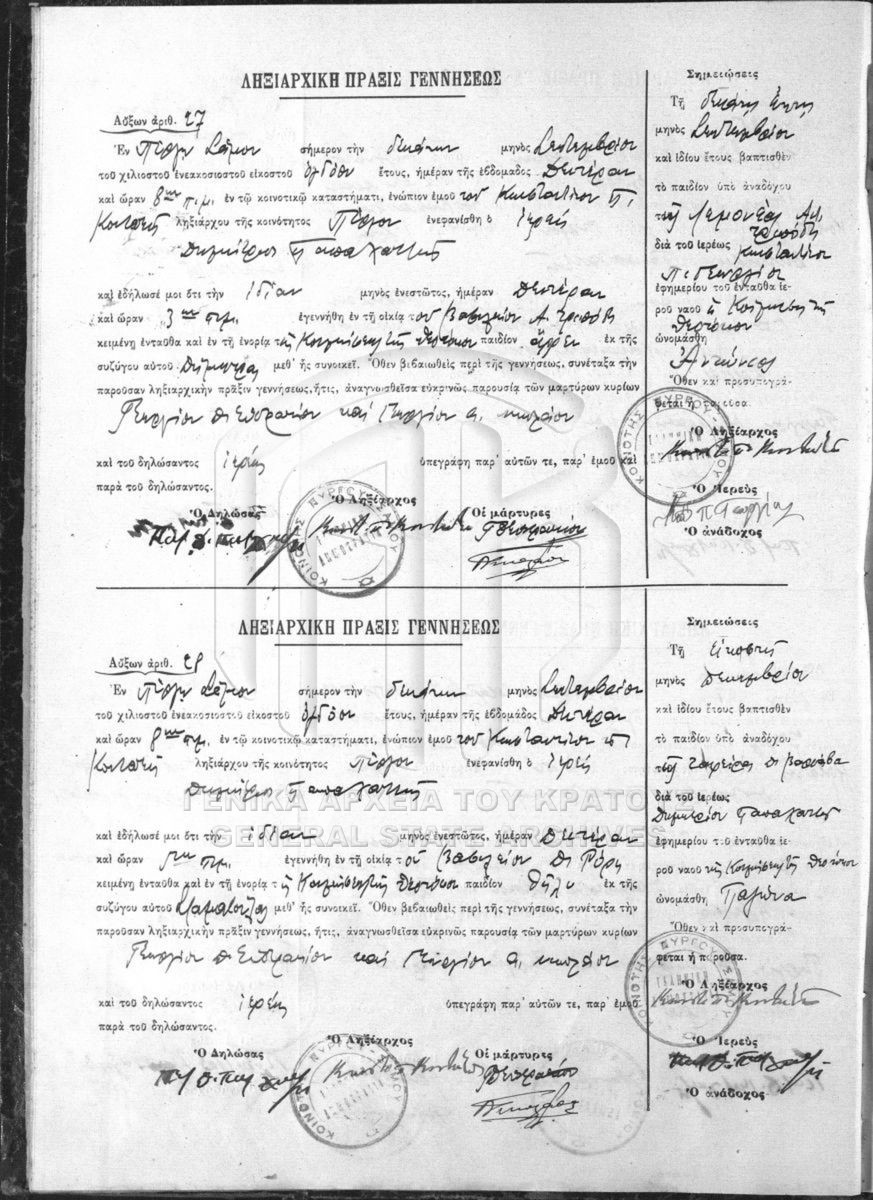 ΛΗΞΙΑΡΧΙΚΗ ΠΡΑΞΙΣ ΓΕΝΝΗΣΕΩΣ
Αὔξων ἀριθ. 27
Ἐν Πύργῳ Σάμου σήμερον τὴν δεκάτην μηνὸς Σεπτεμβρίου
τοῦ χιλιοστοῦ ἐνεακοσιοστοῦ εἰκοστοῦ ὀγδόου ἔτους, ἡμέραν τῆς ἑβδομάδος Δευτέραν
καὶ ὥραν 8ην π.μ. ἐν τῷ κοινοτικῷ καταστήματι, ἐνώπιον ἐμοῦ τοῦ Κωνσταντίνου Π.
ληξιάρχου τῆς κοινότητος Πύργου ἐνεφανίσθη ὁ ἱερεὺς
Δημήτριος Παπαχατζῆς
καὶ ἐδήλωσέ μοι ὅτι τὴν ἰδίαν μηνὸς ἐνεστῶτος, ἡμέραν Δευτέραν
καὶ ὥραν 3ην π.μ. ἐγεννήθη ἐν τῇ οἰκίᾳ τοῦ Βασιλείου Α.
κειμένῃ ἐνταῦθα καὶ ἐν τῇ ἐνορίᾳ τῆς Κοιμήσεως τῆς Θεοτόκου παιδίον ἄρρεν ἐκ τῆς
συζύγου αὐτοῦ Δήμητρας μεθ' ἧς συνοικεῖ. Ὅθεν βεβαιωθεὶς περὶ τῆς γεννήσεως, συνέταξα τὴν
παροῦσαν ληξιαρχικὴν πρᾶξιν γεννήσεως, ἥτις, ἀναγνωσθεῖσα εὐκρινῶς παρουσίᾳ τῶν μαρτύρων κυρίων
Γεωργίου καὶ Γεωργίου Α. Νικολάου
καὶ τοῦ δηλώσαντος ἱερέως ὑπεγράφη παρ' αὐτῶν τε, παρ' ἐμοῦ καὶ
παρὰ τοῦ δηλώσαντος.
Ὁ Δηλώσας Ὁ Ληξίαρχος Οἱ μάρτυρες
ΚΟΙΝΟΤΗΣ ΠΥΡΓΟΥ - ΣΑΜΟΥ
Σημειώσεις
Τῇ δεκάτῃ
μηνὸς Σεπτεμβρίου
καὶ ἰδίου ἔτους βαπτισθὲν
τὸ παιδίον ὑπὸ ἀναδόχου
τῆς Λεμονιᾶς
διὰ τοῦ ἱερέως Κωνσταντίνου
Π. Γεωργίου
ἐφημερίου τοῦ ἐνταῦθα ἱε-
ροῦ ναοῦ Κοιμήσεως τῆς
Θεοτόκου
ὠνομάσθη
Ἀντώνιος
Ὅθεν καὶ προσυπογρά-
φεται ἡ παροῦσα.
Ὁ Ληξίαρχος
ΚΟΙΝΟΤΗΣ ΠΥΡΓΟΥ - ΣΑΜΟΥ
Ὁ Ἱερεὺς
Ὁ ἀνάδοχος
ΛΗΞΙΑΡΧΙΚΗ ΠΡΑΞΙΣ ΓΕΝΝΗΣΕΩΣ
Αὔξων ἀριθ. 28
Ἐν Πύργῳ Σάμου σήμερον τὴν δεκάτην μηνὸς Σεπτεμβρίου
τοῦ χιλιοστοῦ ἐνεακοσιοστοῦ εἰκοστοῦ ὀγδόου ἔτους, ἡμέραν τῆς ἑβδομάδος Δευτέραν
καὶ ὥραν 8ην π.μ. ἐν τῷ κοινοτικῷ καταστήματι, ἐνώπιον ἐμοῦ τοῦ Κωνσταντίνου Π.
ληξιάρχου τῆς κοινότητος Πύργου ἐνεφανίσθη ὁ ἱερεὺς
Δημήτριος Παπαχατζῆς
ΓΕΝΙΚΑ ΑΡΧΕΙΑ ΤΟΥ ΚΡΑΤΟΥΣ
GENERAL STATE ARCHIVES
καὶ ἐδήλωσέ μοι ὅτι τὴν ἰδίαν μηνὸς ἐνεστῶτος, ἡμέραν Δευτέραν
καὶ ὥραν π.μ. ἐγεννήθη ἐν τῇ οἰκίᾳ τοῦ Βασιλείου
κειμένῃ ἐνταῦθα καὶ ἐν τῇ ἐνορίᾳ τῆς Κοιμήσεως τῆς Θεοτόκου παιδίον θῆλυ ἐκ τῆς
συζύγου αὐτοῦ μεθ' ἧς συνοικεῖ. Ὅθεν βεβαιωθεὶς περὶ τῆς γεννήσεως, συνέταξα τὴν
παροῦσαν ληξιαρχικὴν πρᾶξιν γεννήσεως, ἥτις, ἀναγνωσθεῖσα εὐκρινῶς παρουσίᾳ τῶν μαρτύρων κυρίων
Γεωργίου καὶ Γεωργίου Α. Νικολάου
καὶ τοῦ δηλώσαντος ἱερέως ὑπεγράφη παρ' αὐτῶν τε, παρ' ἐμοῦ
παρὰ τοῦ δηλώσαντος.
Ὁ Δηλώσας Ὁ Ληξίαρχος Οἱ μάρτυρες
ΚΟΙΝΟΤΗΣ ΠΥΡΓΟΥ - ΣΑΜΟΥ
Σημειώσεις
Τῇ εἰκοστῇ
μηνὸς Δεκεμβρίου
καὶ ἰδίου ἔτους βαπτισθὲν
τὸ παιδίον ὑπὸ ἀναδόχου
τῆς
διὰ τοῦ ἱερέως
Δημητρίου Παπαχατζῆ
ἐφημερίου τοῦ ἐνταῦθα ἱε-
ροῦ ναοῦ τῆς Κοιμήσεως τῆς Θεοτόκου
ὠνομάσθη
Ὅθεν καὶ προσυπογρά-
φεται ἡ παροῦσα.
Ὁ Ληξίαρχος
ΚΟΙΝΟΤΗΣ ΠΥΡΓΟΥ - ΣΑΜΟΥ
Ὁ Ἱερεὺς
Ὁ ἀνάδοχος